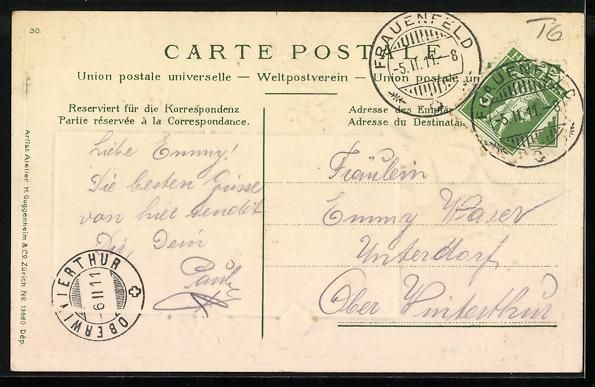 30.
T6
CARTE POSTALE
Union postale universelle — Weltpostverein — Union postale un
Reserviert für die Korrespondenz
Partie réservée à la Correspondance.
Adresse des Empfän
Adresse du Destinatai
FRAUENFELD
-5.II.11.-8
FRAUENFELD
-5.II.11.-8
Liebe Emmy!
Die besten Grüsse
von hier sendet
Dir, Dein
Paul
Fräulein
Emmy Waser
Unterdorf
Ober Winterthur
OBERWINTERTHUR
-6.II.11
Artist. Atelier H. Guggenheim & Co, Zürich No. 13680 Dép.